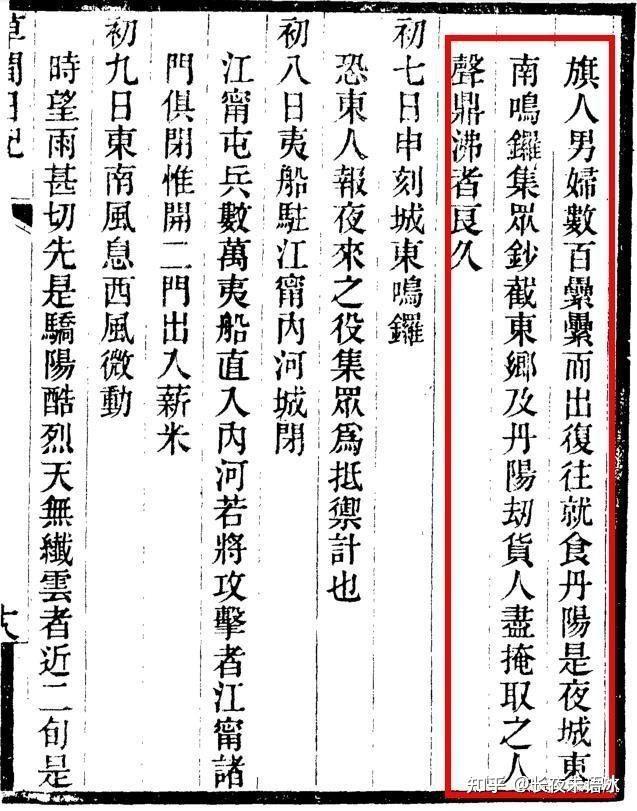 旗人男婦數百纍纍而出復往就食丹陽是夜城東
南鳴鑼集眾鈔截東鄉及丹陽刧貨人盡掩取之人
聲鼎沸者良久
初七日申刻城東鳴鑼
恐東人報夜來之役集眾爲抵禦計也
初八日夷船駐江甯內河城閉
江甯屯兵數萬夷船直入內河若將攻擊者江甯諸
門俱閉惟開二門出入薪米
初九日東南風息西風微動
時望雨甚切先是驕陽酷烈天無纖雲者近二旬是
草間日記
知乎 @长夜未语冰